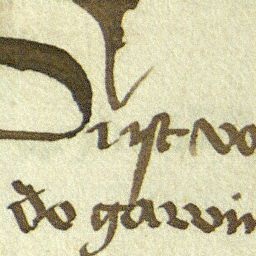 Dijst vo
do garwin